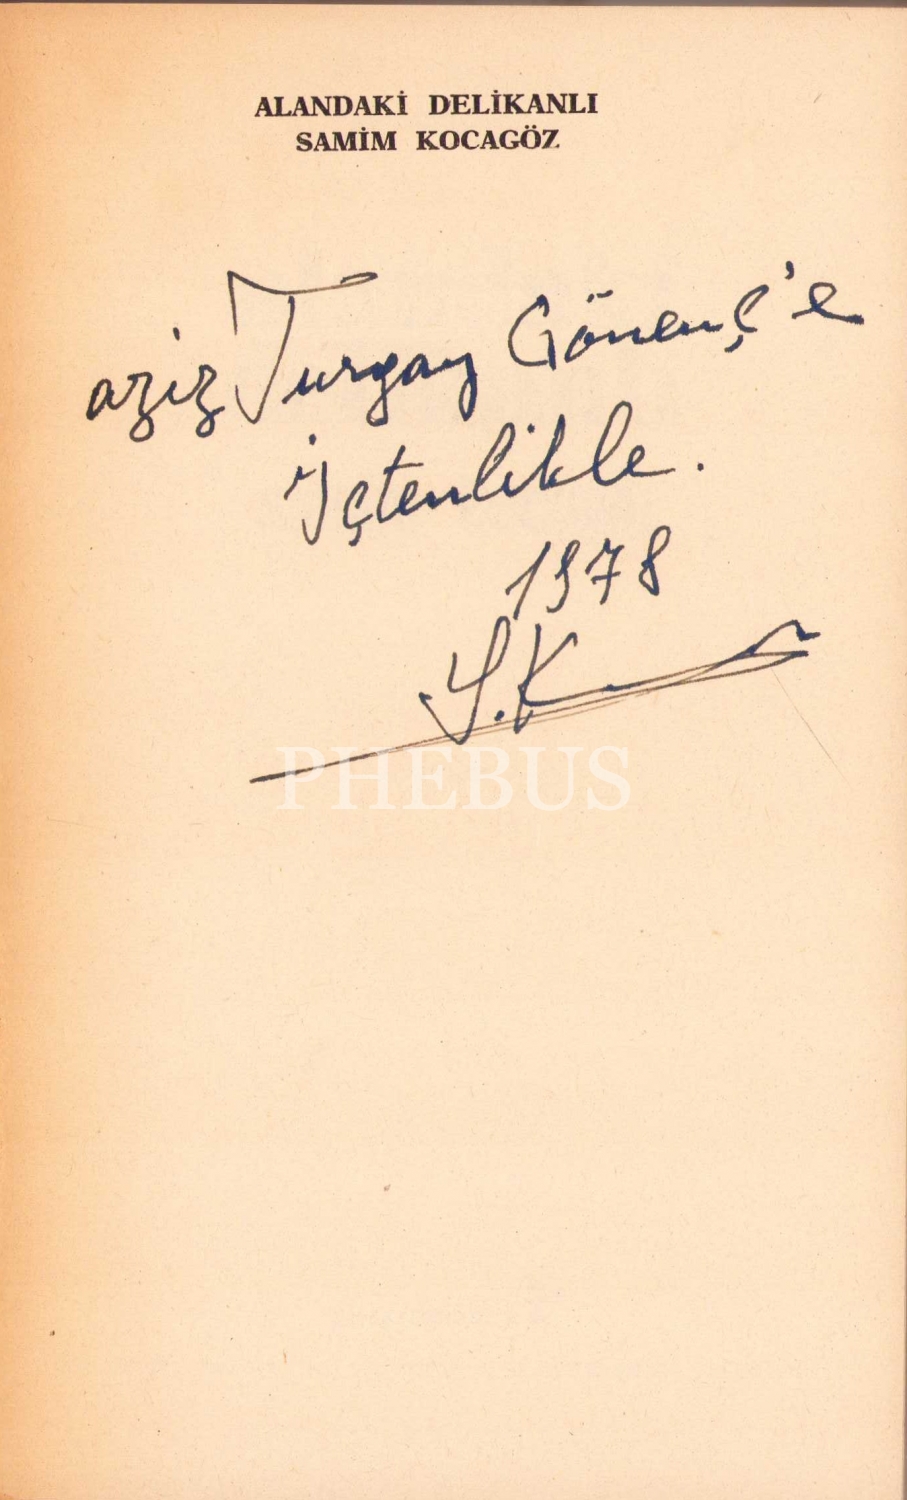 ALANDAKİ DELİKANLI
SAMİM KOCAGÖZ
aziz Turgay Gönenç'e
İçtenlikle.
1978
S.K
PHEBUS